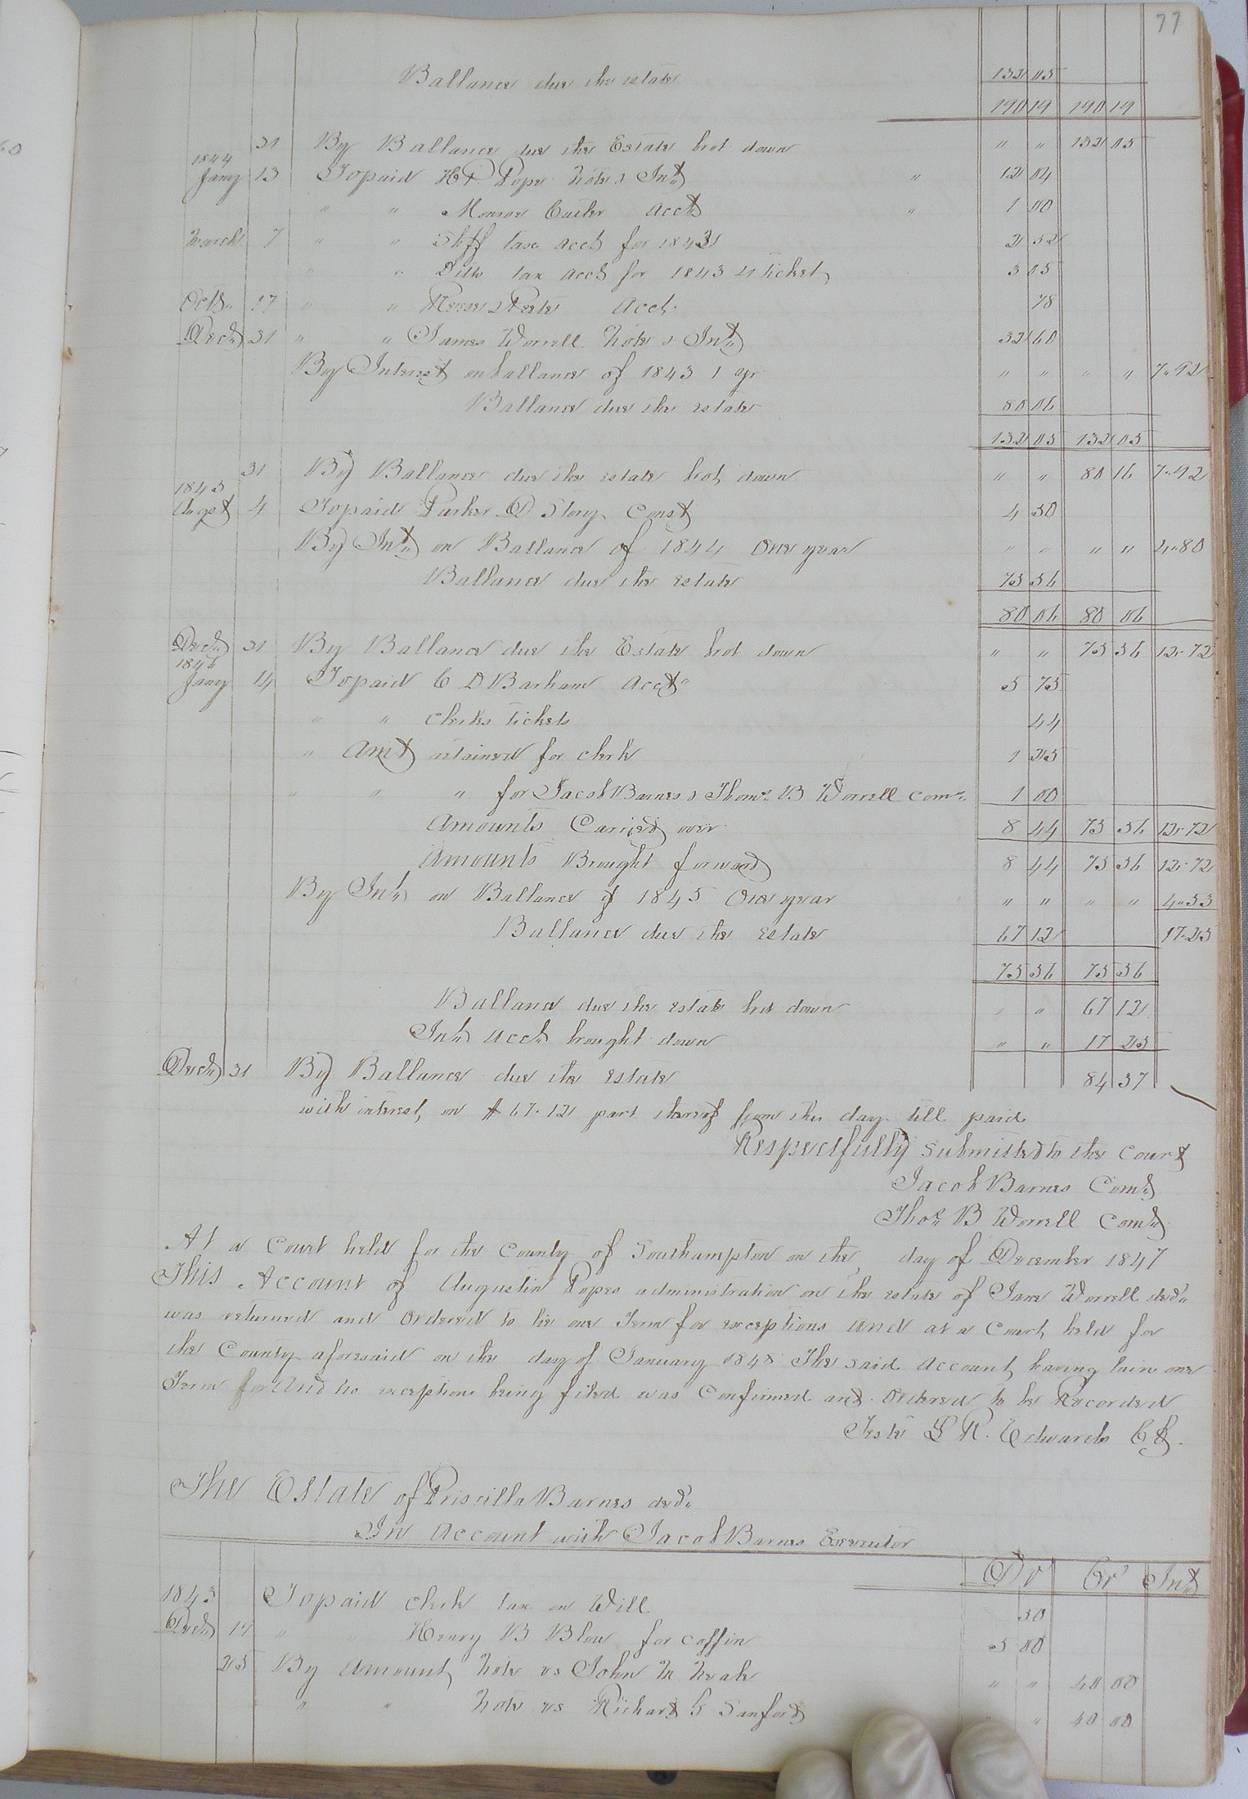 77
Ballance due the estate 132 05
190 19 190 19
31 By Ballance due the Estate brt down " " 132 05
1844
Jany 13 To paid H P Pope note & Int " 12 04
" " Monroe Carter Acct " 1 00
March 7 " " Shff tax acct for 1842 2 52
" " Ditto tax acct for 1843 4 tickets 3 05
Octr 17 " " Acct 78
Decr 31 " " James Worrell Note & Int 32 60
By Interest on ballance of 1843 1 yr " " " " 7.92
Ballance due the estate 80 06
132 05 132 05
31 By Ballance due the estate brot down " " 80 16 7.92
1845
Augst 4 To paid Parker D Story Const 4 50
By Int on Ballance of 1844 One year " " " " 4.80
Ballance due the estate 75 56
80 06 80 06
Decr 31 By Ballance due the Estate brt down " " 75 56 12.72
1846
Jany 14 To paid C D Barham Acct 5 75
" " clerks tickets 44
" Amt retained for clerk 1 25
" " " for Jacob Barnes & Thoms. B Worrell coms. 1 00
Amounts Carried over 8 44 75 56 12.72
Amounts Brought forward 8 44 75 56 12.72
By Int on Ballance of 1845 One year " " " " 4.53
Ballance due the Estate 67 12 17.25
75 56 75 56
Ballance due the estate brt down " " 67 12
Int acct brought down " " 17 25
Decr 31 By Ballance due the estate 84 37
with interest on $67.12 part thereof from this day till paid
Respectfully submitted to the court
Jacob Barnes Comr
Thos B Worrell Comr
At a Court held for the County of Southampton on the day of December 1847
This Account of Augustin Popes administration on the estate of Jane Worrell decd
was returned and ordered to lie one Term for exceptions and at a Court held for
the County aforesaid on the day of January 1848 The said Account having lain one
Term for And no exceptions being filed was Confirmed and ordered to be Recorded
Teste L R. Edwards Ck.
The Estate of Priscilla Barnes decd
In Account with Jacob Barnes Executor
Dr Cr Int
1843 To paid clerk tax on Will 50
Decr 17 " " Henry B Blow for coffin 5 00
25 By Amount Note vs John M 40 00
" " Note vs Richard G Sanford " " 40 00